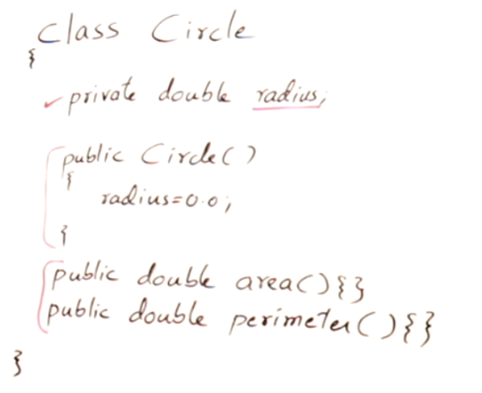 class Circle
{
private double radius;
public Circle()
{
radius=0.0;
}
public double area(){}
public double perimeter(){}
}